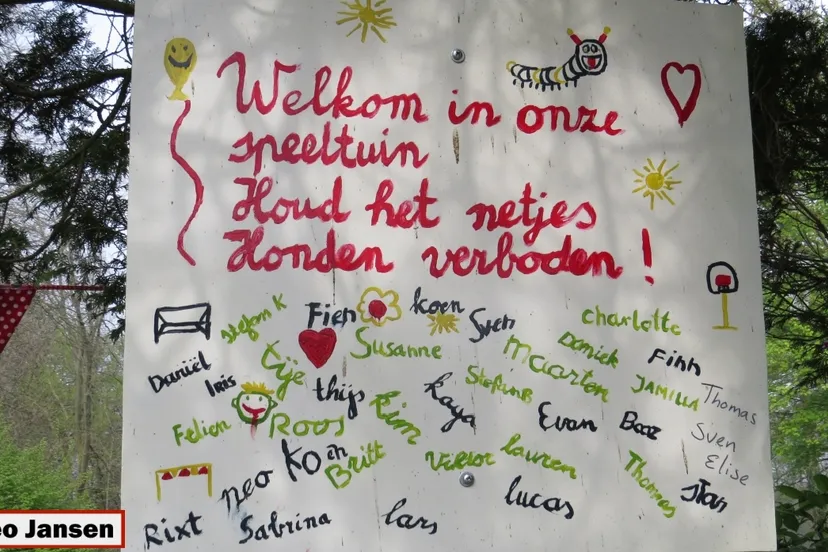 Welkom in onze
speeltuin
Houd het netjes
Honden verboden!
Stefan K
Fien
koen
Sven
charlotte
Daniël
Iris
Tije
Susanne
Maarten
Daniek
Finn
thijs
Kim
kaya
Stefan B
JAMILLA
Thomas
Felien
Roos
Evan
Boaz
Sven
Elise
neo
Koen
Britt
Viktor
lauren
Thomas
stan
Rixt
Sabrina
lars
lucas
eo Jansen